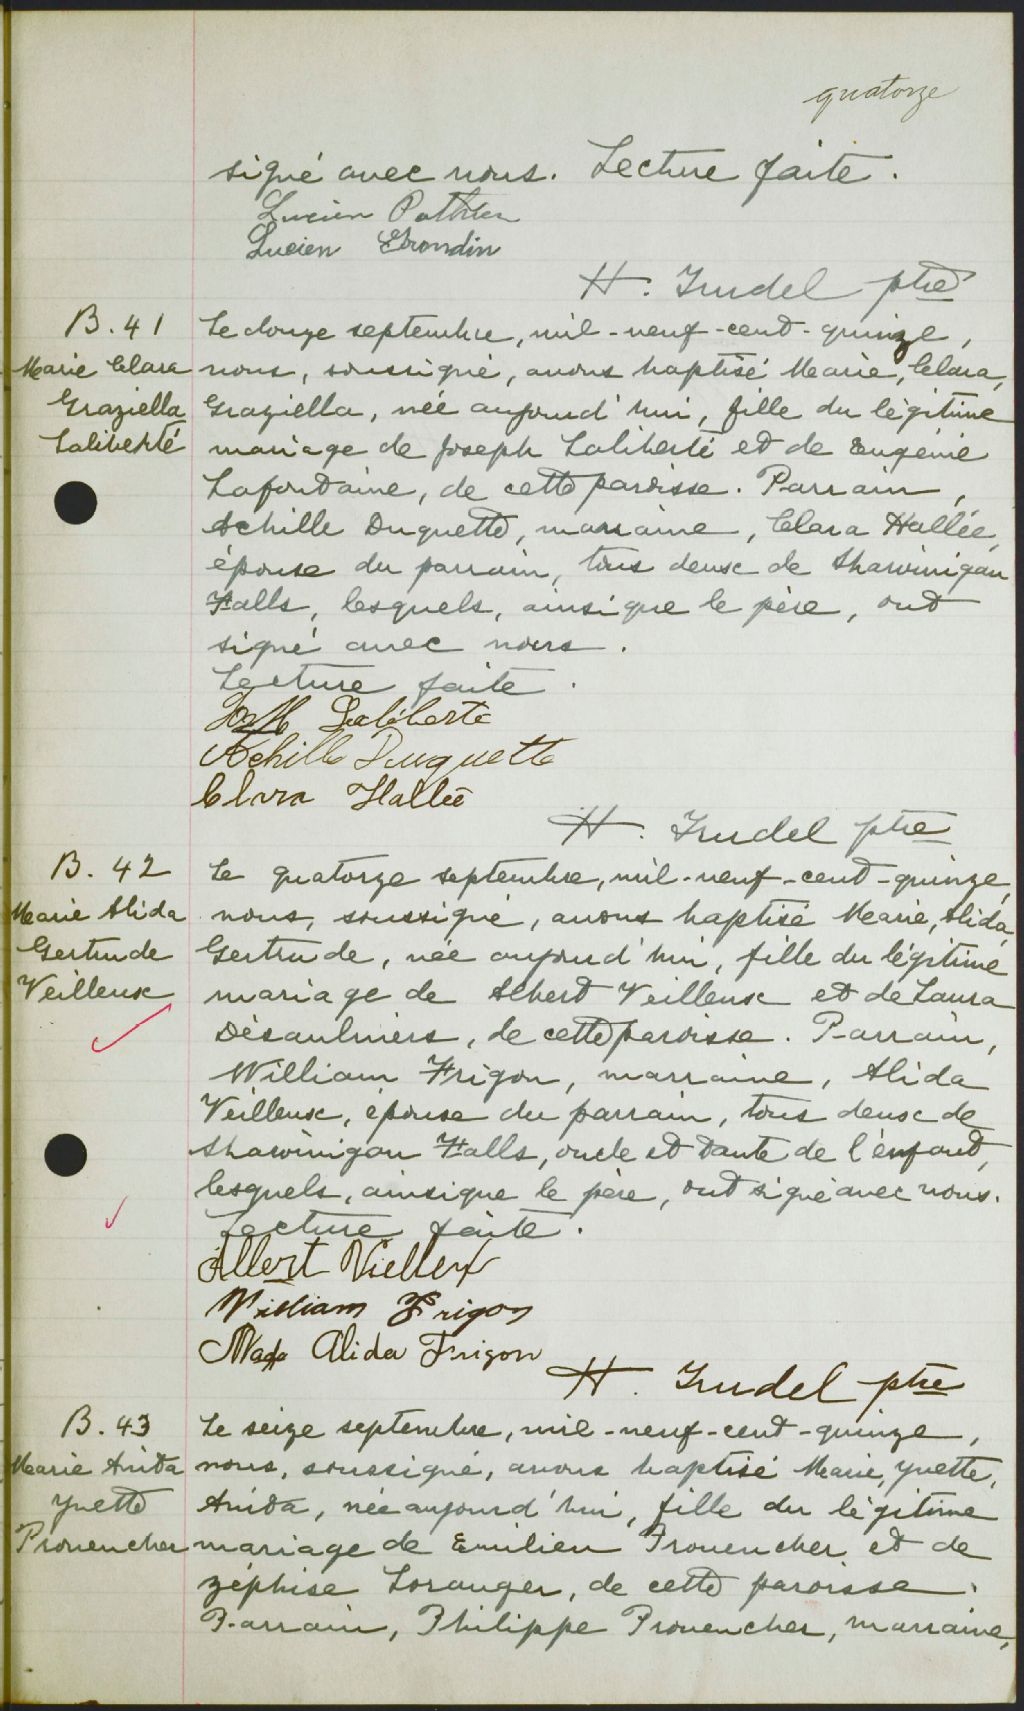 quatorze
signé avec nous. Lecture faite.
Lucien
Lucien Grondin
H. Trudel ptre
B. 41
Marie Clara
Graziella
Laliberté
Le douze septembre, mil-neuf-cent-quinze,
nous, soussigné, avons baptisé Marie, Clara,
Graziella, née aujourd'hui, fille du légitime
mariage de Joseph Laliberté et de Eugénie
Lafontaine, de cette paroisse. Parrain,
Achille Duquette, marraine, Clara Hallée,
épouse du parrain, tous deux de Shawinigan
Falls, lesquels, ainsi que le père, ont
signé avec nous.
Lecture faite.
Jos Laliberte
Achille Duquette
Clara Hallée
H. Trudel ptre
B. 42
Marie Alida
Gertrude
Veilleux
Le quatorze septembre, mil-neuf-cent-quinze,
nous, soussigné, avons baptisé Marie, Alida,
Gertrude, née aujourd'hui, fille du légitime
mariage de Albert Veilleux et de Laura
Désaulniers, de cette paroisse. Parrain,
William Frigon, marraine, Alida
Veilleux, épouse du parrain, tous deux de
Shawinigan Falls, oncle et tante de l'enfant,
lesquels, ainsi que le père, ont signé avec nous.
Lecture faite.
Albert Viellex
William Frigon
Alida Frigon
H. Trudel ptre
B. 43
Marie Anita
Yvette
Provencher
Le seize septembre, mil-neuf-cent-quinze,
nous, soussigné, avons baptisé Marie, Yvette,
Anita, née aujourd'hui, fille du légitime
mariage de Emilien Provencher et de
Zéphise Loranger, de cette paroisse.
Parrain, Philippe Provencher, marraine,